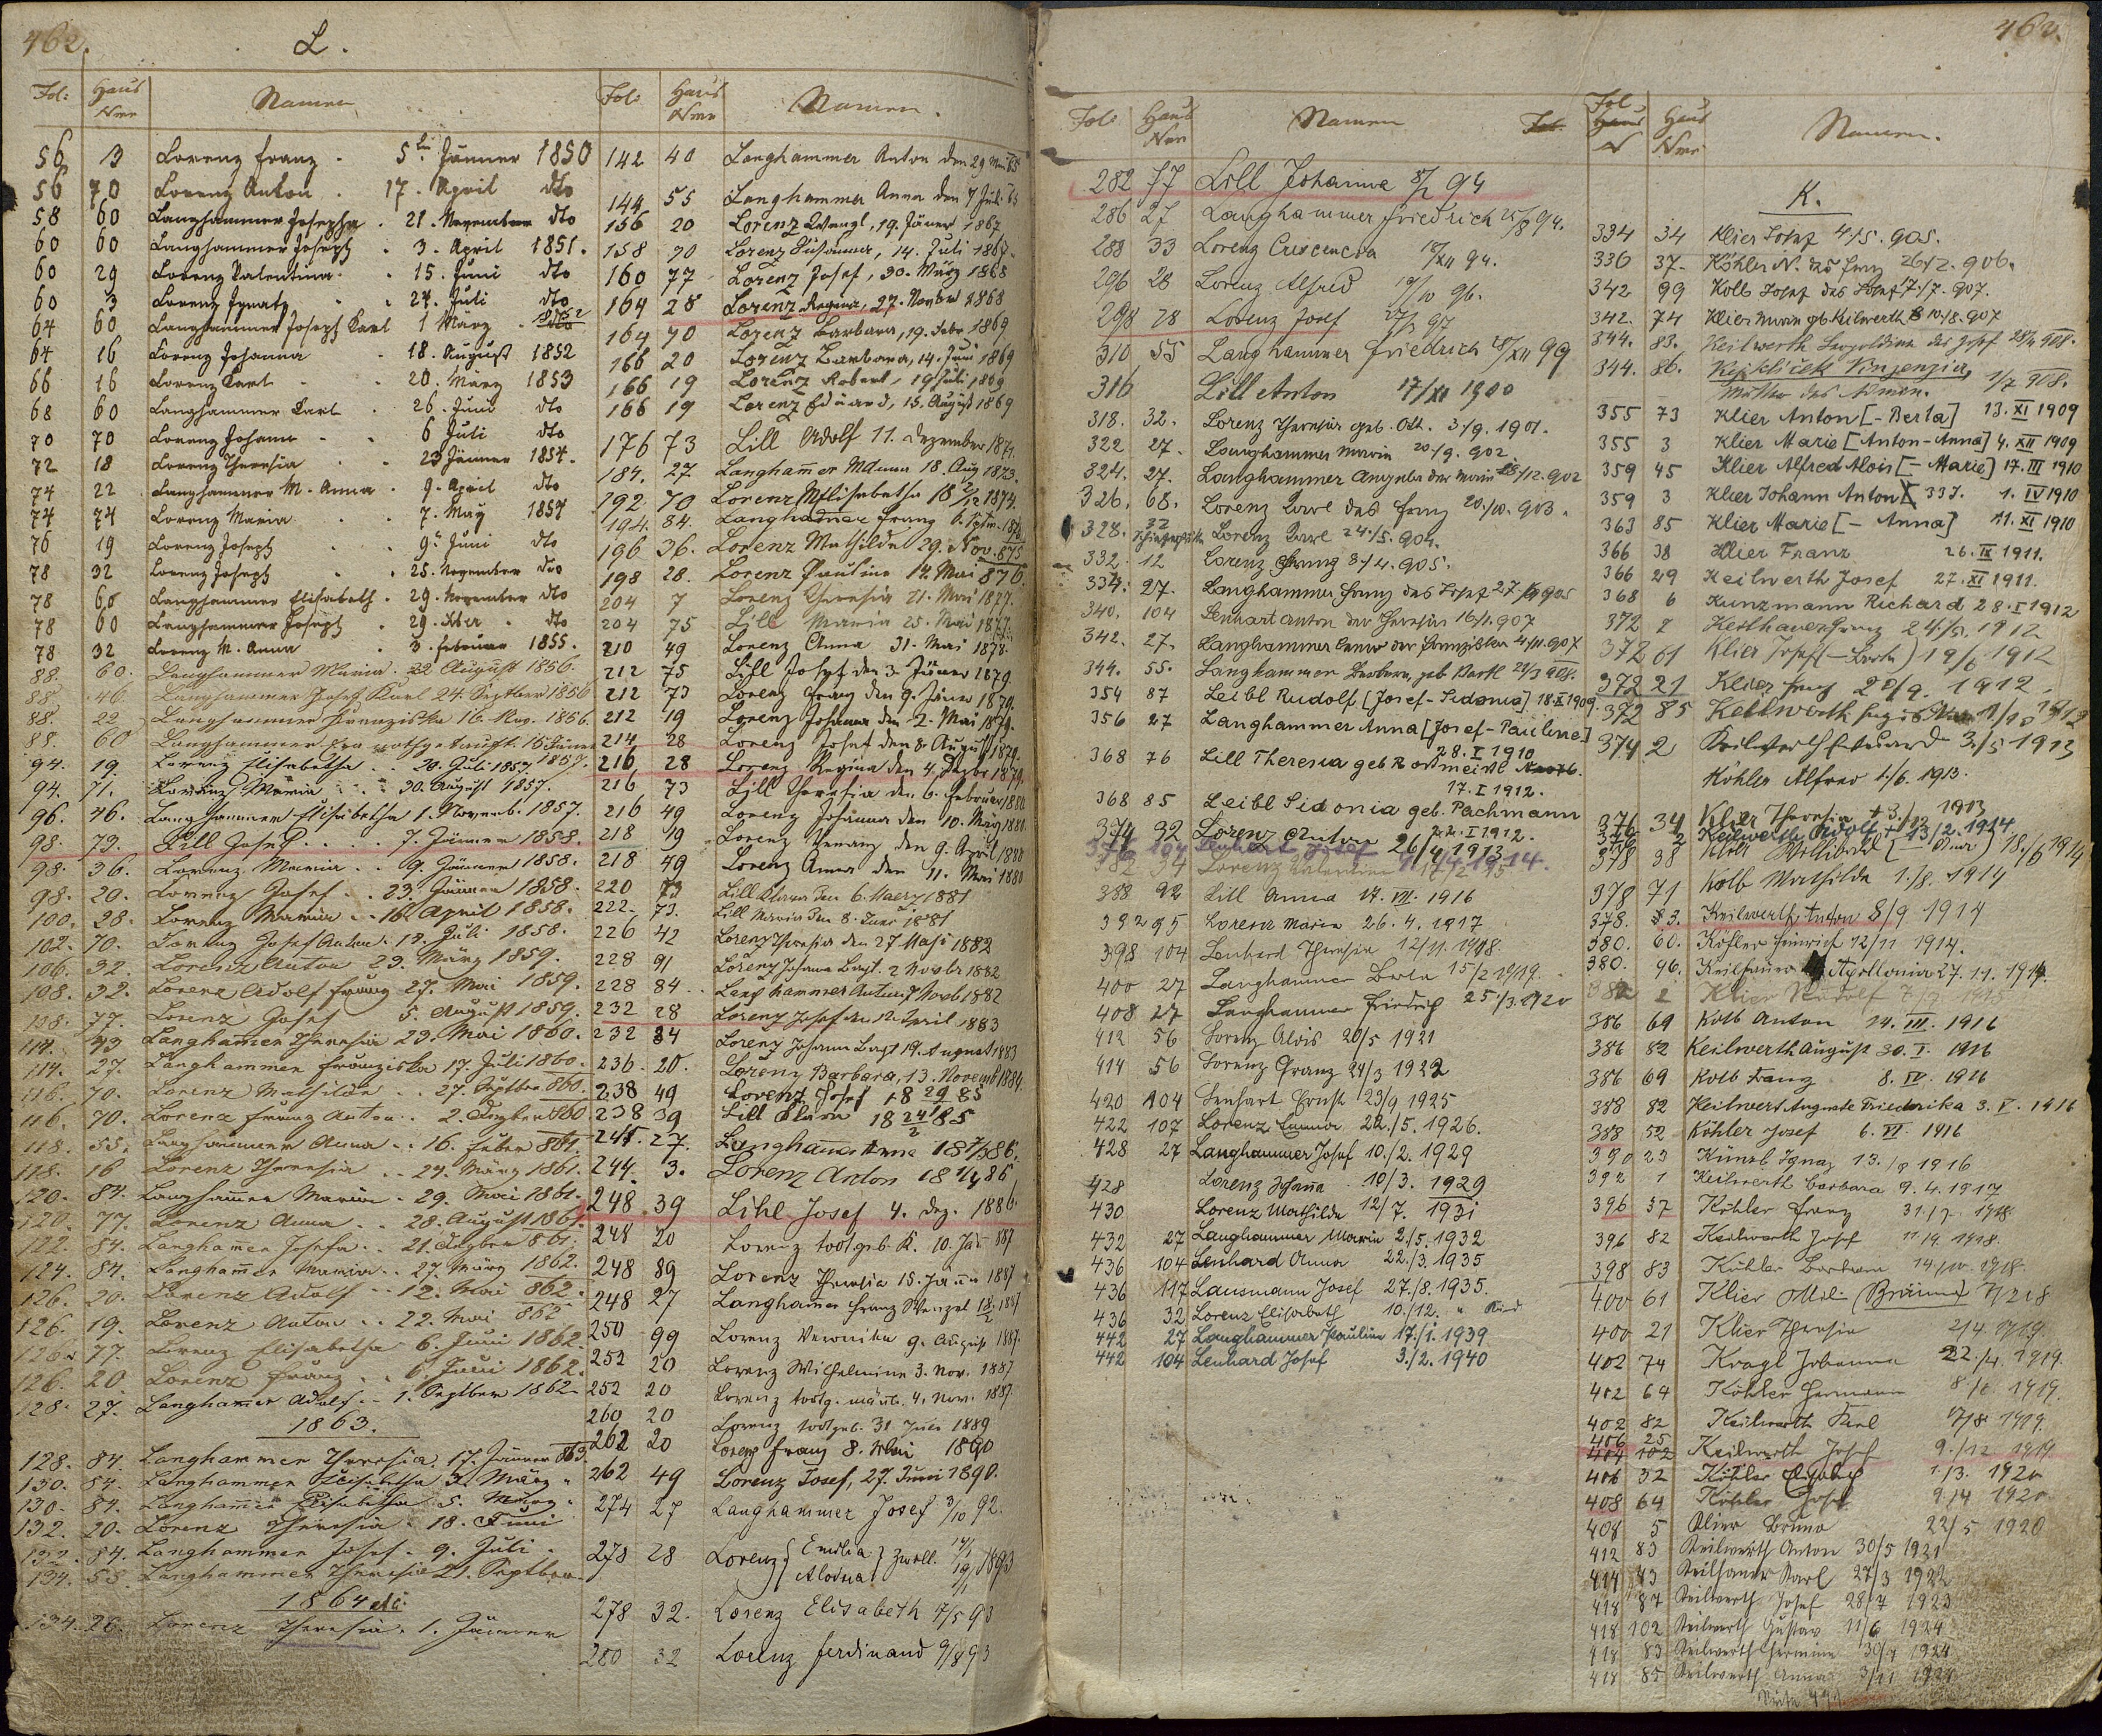 462.
L.
Fol: Haus Nro Namen
56 3 Lorenz Franz 5 Jänner 1850
56 70 Lorenz Anton 17. April dto
58 60 Langhammer Josepha 21. November dto
60 60 Langhammer Joseph 3. April 1851.
60 29 Lorenz Valentina 15. Juni dto
60 3 Lorenz Ignatz 24. Juli dto
64 60 Langhammer Joseph Karl 1 März
64 16 Lorenz Johanna 18. August 1852
66 16 Lorenz Karl 20. März 1853
68 60 Langhammer Karl 26. Juni dto
70 70 Lorenz Johann 6 Juli dto
72 18 Lorenz Theresia 23 Jänner 1854.
74 22 Langhammer M. Anna 9. April dto
74 74 Lorenz Maria 7. May 1854
76 19 Lorenz Joseph 9. Juni dto
78 32 Lorenz Joseph 25. November dto
78 60 Langhammer Elisabeth 29. November dto
78 60 Langhammer Joseph 29. dto
78 32 Lorenz M. Anna 3. Februar 1855.
88. 60. Langhammer Maria 22 August 1856.
88. 46. Langhammer Josef Karl 24. Septber 1856
88. 22 Langhammer Franziska 16. Nov. 1856.
88. 60 Langhammer nothgetauft 15 Jäner 1857.
94. 19. Lorenz Elisabetha 20. Juli 1857
94. 71. Lorenz Maria 30. August 1857.
96. 46. Langhammer Elisabetha 1. Novemb. 1857.
98. 73. Lill Josef 7. Jänner 1858.
98. 36. Lorenz Maria 9. Jänner 1858.
98. 20. Lorenz Josef 23. Jänner 1858.
100. 28. Lorenz Maria 16. April 1858.
102. 70. Lorenz Josef Anton 13. Juli 1858.
106. 32. Lorenz Anton 23. März 1859.
108. 32. Lorenz Adolf Franz 27. Mai 1859.
108. 77. Lorenz Josef 5. August 1859.
114. 43 Langhammer Theresia 23. Mai 1860.
114. 27. Langhammer Franziska 17. Juli 1860.
116. 70. Lorenz Mathilde 27. Septbr 860.
116. 70. Lorenz Franz Anton 2. Dezber 860.
118. 55. Langhammer Anna 16. Feber 861.
118. 16 Lorenz Theresia 24. März 1861.
120. 84. Langhammer Maria 29. Mai 1861.
120. 77. Lorenz Anna 28. August 1861.
122. 84. Langhammer Josefa 21. Dezber 861.
124. 84. Langhammer Maria 27. März 1862.
126. 20. Lorenz Adolf 12. Mai 862.
126. 19. Lorenz Anton 22. Mai 862
126. 77. Lorenz Elisabetha 6. Juni 1862.
126. 20. Lorenz Franz 6. Juni 1862.
128. 27. Langhammer Adolf 1. Septber 1862
1863.
128. 84. Langhammer Theresia 17. Jänner 863.
130. 84. Langhammer Elisabetha 2. März
130. 84. Langhammer Elisabetha 5. März
132. 20. Lorenz Theresia 18. Juni
132. 84. Langhammer Josef 9. Juli
134. 55. Langhammer Theresia 21. Septber
1864
134. 28. Lorenz Theresia 1. Jänner
Fol: Haus Nro Namen.
142 40 Langhammer Anton den 29 Mai 65
144 55 Langhammer Anna den 7 Juli 65
156 20 Lorenz Wenzl, 19. Jäner 1867
158 70 Lorenz Susanna, 14. Juli 1867.
160 77 Lorenz Josef, 30. März 1868
164 28 Lorenz Regina, 27. Novbr 1868
164 70 Lorenz Barbara, 19. Febr 1869
166 20 Lorenz Barbara, 14. Juni 1869
166 19 Lorenz Robert, 19 Juli 1869
166 19 Lorenz Eduard, 15. August 1869
176 73 Lill Adolf 11. Dezember 1871.
184. 27 Langhamer Mdanna 18. Aug 1873.
192. 70 Lorenz MElisabetha 18 2/12 1874.
194. 84. Langhammer Franz 6. Septr. 1875
196 36. Lorenz Mathilde 29. Nov. 875
198 28. Lorenz Pauline 14. Mai 876.
204 7 Lorenz Theresia 21. Mai 1877.
204 75 Lill Maria 25. Mai 1877.
210 49 Lorenz Anna 31. Mai 1878.
212 75 Lihl Josef den 3. Jäner 1879.
212 73 Lorenz Franz den 9. Jäner 1879.
212 19 Lorenz Johanna den 2. Mai 1879.
214 28 Lorenz Josef den 8. August 1879.
216 28 Lorenz Regina den 4. Dezbr 1879.
216 73 Lill Theresia den 6. Februar 1880
216 49 Lorenz Johanna den 10. März 1880
218 19 Lorenz Venanz den 9. April 1880
218 49 Lorenz Anna den 11. Mai 1880
220 73 Lill Klara den 6. Maerz 1881
222. 73. Lill Maria den 8. Juni 1881
226 42 Lorenz Theresia den 27 Mai 1882
228 91 Lorenz Johann Bapt. 2 Novbr 1882
228 84 Langhammer Anton 7 Novb 1882
232 28 Lorenz Josef den 12. April 1883
232 84 Lorenz Johann Bapt 19. August 1883
236. 20. Lorenz Barbara, 13. Novemb 1884.
238 49 Lorenz Josef 18 29 85
238 39 Lill Klara 18 24/2 85
245. 27. Langhamer Anna 18 7/3 86.
244. 3. Lorenz Anton 18 1/4 86
248 39 Lihl Josef 4. Dez. 1886
248 20 Lorenz todtgeb. K. 10. Jän 887
248 89 Lorenz Theresia 15. Jänn 1887
248 27 Langhamer Franz Wenzel 18/2 1887
250 99 Lorenz Veronika 9. August 1887.
252 20 Lorenz Wilhelmine 3. Nov. 1887
252 20 Lorenz todtg. männl. 4. Nov. 1887.
260 20 Lorenz todtgeb. 31 Juli 1889
262 20 Lorenz Franz 8. Mai 1890
262 49 Lorenz Josef, 27. Juni 1890.
274 27 Langhammer Josef 3/10 92.
278 28 Lorenz { Emilia Aloisia } Zwill. 19/1 1893
278 32. Lorenz Elisabeth 7/5 93
280 32 Lorenz Ferdinand 9/8 93
462.
Fol: Haus Nro Namen
282 77 Lill Johanna 8/1 94
286 27 Langhammer Friedrich 25/8 94.
288 33 Lorenz Crescencia 18/XII 94.
296 28 Lorenz Alfred 19/10 96.
298 28 Lorenz Josef 27/3 97
310 55 Langhammer Friedrich 28/XII 99
316 Lill Anton 17/XI 1900
318. 32. Lorenz Theresia geb. Ott. 3./9. 1901.
322 27. Langhammer Maria 20/9. 902
324. 27. Langhammer Angela der Maria 28/12. 902
326. 68. Lorenz Karl des Franz 20./10. 903.
328. 32 Lorenz Karl 24./5. 904.
332. 12 Lorenz Franz 8/4. 905.
334. 27. Langhammer Franz des Josef 27. 905
340. 104 Lenhart Anton der Theresia 16/1. 907
342. 27. Langhammer der Franziska 4/11. 907
344. 55. Langhammer Barbara, geb Bartl 21/3 908.
354 87 Leibl Rudolf [Josef-Sidonia] 18.II 1909.
356 27 Langhammer Anna [Josef-Pauline] 28. I 1910
368 76 Lill Theresia geb Rossmeisl 17. I 1912.
368 85 Leibl Sidonia geb. Pachmann 22. I 1912.
374 32 Lorenz Anton 26/4 1913
376 104 Lenhart Josef 4/4. 1914.
382 34 Lorenz Valentin
388 92 Lill Anna 14. VII. 1916
392 95 Lorenz Maria 26. 4. 1917
398 104 Lenherd Theresia 12/11. 1918.
400 27 Langhammer Berta 15/2 1919.
408 27 Langhammer Friedrich 25/3. 1920
412 56 Lorenz Alois 20/5 1921
414 56 Lorenz Franz 24/3 1922
420 104 Lenhart Ernst 23/9 1925
422 107 Lorenz Emma 22./5. 1926.
428 27 Langhammer Josef 10./2. 1929
428 Lorenz Johanna 10/3. 1929
430 Lorenz Mathilde 12/7. 1931
432 27 Langhammer Maria 2./5. 1932
436 104 Lenhard Anna 22./3. 1935
436 117 Lausmann Josef 27./8. 1935.
436 32 Lorenz Elisabeth 10./12. " Kind
442 27 Langhammer Pauline 17./1. 1939
442 104 Lenhard Josef 3./2. 1940
Fol Haus Nro Namen.
K.
334 34 Klier Josef 4/5. 905.
336 37. Köhler N. des Franz 26/2. 906.
342 99 Kolb Josef des Josef 7./7. 907.
342. 74 Klier Maria gb Keilwerth 10./8. 907
344. 83. Keilwerth Leopoldine des Josef 908.
344. 86. Vinzenzia, 1/7 908.
Mutter des
355 73 Klier Anton [-Berta] 13. XI 1909
355 3 Klier Marie [Anton-Anna] 4. XII 1909
359 45 Klier Alfred Alois [-Marie] 17. III 1910
359 3 Klier Johann Anton 33J. 1. IV 1910
363 85 Klier Marie [-Anna] 11. XI 1910
366 38 Klier Franz 26. IX 1911.
366 29 Keilwerth Josef 27. XI 1911.
368 6 Kunzmann Richard 28. I 1912
372 7 Franz 24./5. 1912
372 61 Klier Josef (-Berta) 19/6 1912
372 21 Klier Franz 20/9. 1912.
372 85 Keilwerth
374 2 Keilwerth Eduard 3/5 1913
Köhler Alfred 1./6. 1913.
376 34 Klier Theresia 1913
376 2 Keilwerth Adolf 13/2. 1914
378 38 Klier Willibald 18./6 1914
378 71 Kolb Mathilde 1./8. 1914
378. 83. Keilwerth Anton 8/9 1914
380. 60. Köhler Heinrich 12/11 1914.
380. 96. Keilhauer Apollonia 27. 11. 1914.
382 2 Klier Rudolf
386 69 Kolb Anton 14. III. 1916
386 82 Keilwerth August 30. I. 1916
386 69 Kolb Franz 8. IV. 1916
388 82 Keilwert Auguste Friederika 3. V. 1916
388 52 Köhler Josef 6. VI. 1916
390 23 Künzl Ignaz 13./8 1916
392 1 Keilwerth Barbara 9. 4. 1917
396 37 Köhler Franz 31./7. 1918.
396 82 Keilwerth Josef 11./9. 1918.
398 83 Köhler Barbara 14/10. 1918.
400 61 Klier
400 21 Klier Theresia 2/4 1919.
402 74 Kragl Johanna 22./4. 1919.
402 64 Köhler Hermann 8./6. 1919.
402 82 Keilwerth Karl 17/8 1919.
406 25
404 102 Keilwerth Josef 9./12 1919.
406 32 Köhler Elisabeth 1./3. 1920
408 64 Köhler Josef 9/4 1920
408 5 Klier Bruno 22/5 1920
412 83 Keilwerth Anton 30/5 1921
414 43 Keilhauer Karl 27/3 1922
418 87 Keilwerth Josef 28/7 1923
418 102 Keilwerth Gustav 11/6 1924
418 83 Keilwerth Hermine 30/7 1924
418 85 Keilwerth Anna 3/11 1924